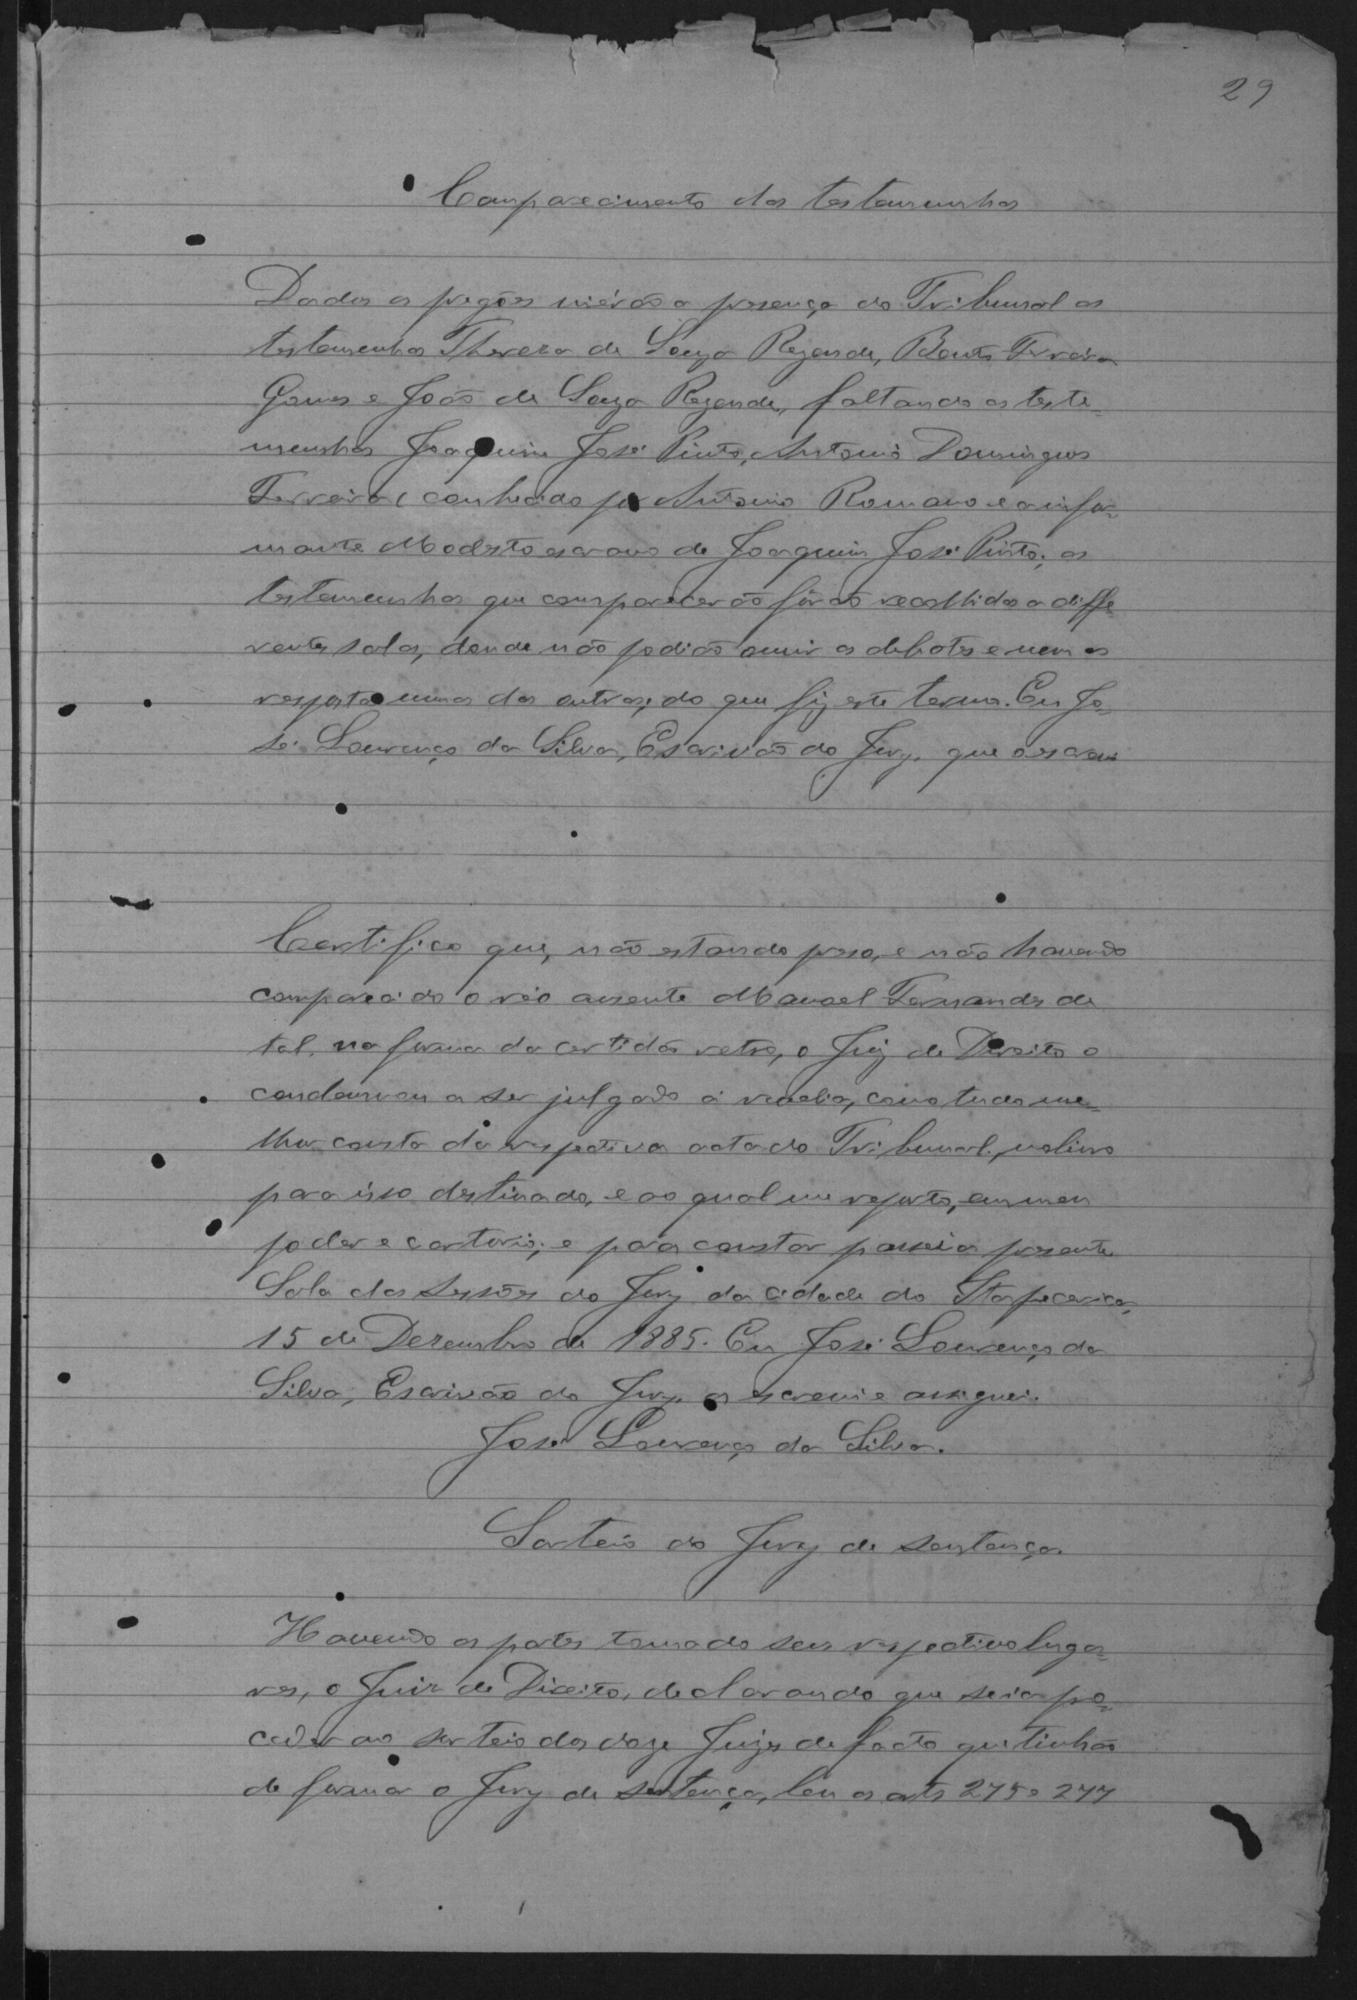 29
Comparecimento das testemunhas
Dados os pregões viérão a presença do Tribunal as
testemunhas Thereza de Souza Rezende, Bento Ferreira
Gomes e João de Souza Rezende, faltando as teste-
munhas Joaquim José Pinto, Antonio Domingues
Ferreira (conhecido por Antonio Romano e a infor-
mante Modesto escravo de Joaquim José Pinto; as
testemunhas que comparecerão fôrão recolhidas a diffe
rentes salas, donde não podião ouvir os debates e nem as
respostas umas das outras; do que fiz este termo. Eu Jo-
sé Lourenço da Silva, Escrivão do Jury, que o escrevi
Certifico que, não estando preso, e não havendo
comparecido o réo ausente Manoel Fernandes de
tal, na forma da certidão retro, o Juiz de Direito o
condemnou a ser julgado á revelia, como tudo me-
lhor consta da respectiva acta do Tribunal, no livro
para isso destinado, e ao qual me reporto, em meu
poder e cartorio; e para constar passei a presente
Sala das Sessões do Jury da cidade do Itapecerica,
15 de Dezembro de 1885. Eu José Lourenço da
Silva, Escrivão do Jury, os escrevi e assignei.
José Lourenço da Silva.
Sorteio do Jury de sentença.
Havendo as partes tomado seus respectivos luga-
res, o Juiz de Direito, declarando que se ia pro-
ceder ao sorteio dos doze Juizes de facto que tinhão
de formar o Jury de sentença, leu os arts 275 e 277